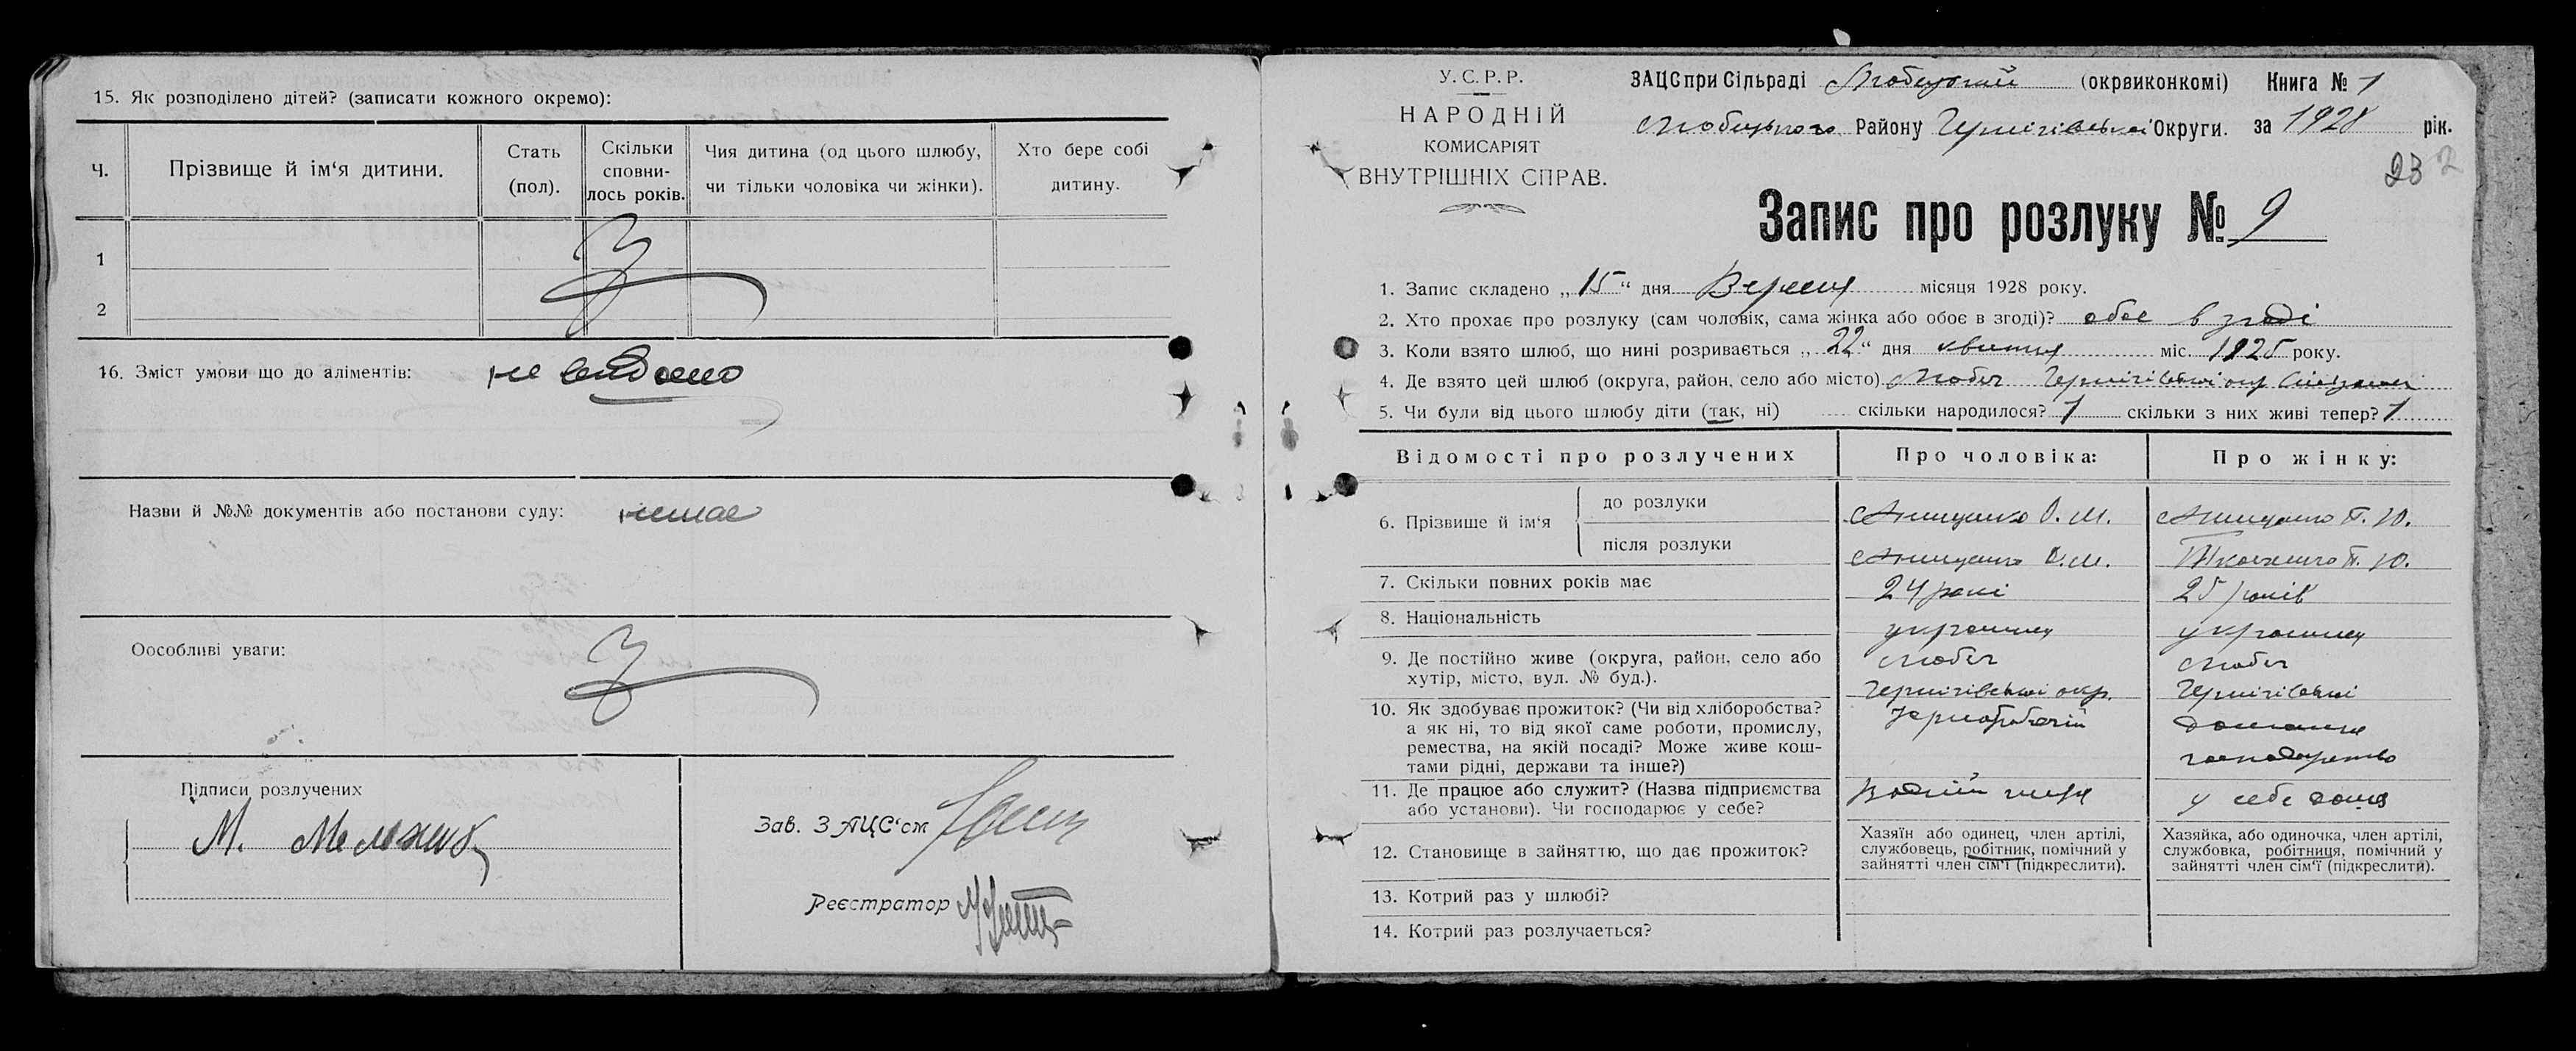 15. Як розподілено дітей? (записати кожного окремо):
Ч.
Прізвище й ім'я дитини.
Стать
(пол).
Скільки
сповни-
лось років.
Чия дитина (од цього шлюбу,
чи тільки чоловіка чи жінки).
Хто бере собі
дитину.
1
2
16. Зміст умови що до аліментів:
Назви й №№ документів або постанови суду: немає
Оособливі уваги:
Підписи розлучених
М.
Зав. ЗАЦС'ом
Реєстратор
У.С.Р.Р.
НАРОДНІЙ
КОМИСАРІЯТ
ВНУТРІШНІХ СПРАВ.
ЗАЦС при Сільраді Любецький (окрвиконкомі) Книга № 1
Любецького Району Чернігівської Округи. за 1928 рік.
23 2
Запис про розлуку № 9
1. Запис складено „15“ дня Вересня місяця 1928 року.
2. Хто прохає про розлуку (сам чоловік, сама жінка або обоє в згоді)? обоє в згоді
3. Коли взято шлюб, що нині розривається „22“ дня квітня міс. 1925 року.
4. Де взято цей шлюб (округа, район, село або місто) Любеч Чернігівської окр
5. Чи були від цього шлюбу діти (так, ні) скільки народилося? 1 скільки з них живі тепер? 1
Відомості про розлучених
Про чоловіка:
Про жінку:
6. Прізвище й ім'я
до розлуки
Онищенко О. М.
Онищенко П. Ю.
після розлуки
Онищенко О. М.
П. Ю.
7. Скільки повних років має
24 роки
25 років
8. Національність
українец
українец
9. Де постійно живе (округа, район, село або
хутір, місто, вул. № буд.).
Любеч
Чернігівської окр.
Любеч
Чернігівської
10. Як здобуває прожиток? (Чи від хліборобства?
а як ні, то від якої саме роботи, промислу,
ремества, на якій посаді? Може живе кош-
тами рідні, держави та інше?)
чорноробочий
домашнє
господарство
11. Де працює або служит? (Назва підприємства
або установи). Чи господарює у себе?
у себе дома
12. Становище в зайняттю, що дає прожиток?
Хазяїн або одинец, член артілі,
службовець, робітник, помічний у
зайнятті член сім'ї (підкреслити).
Хазяйка, або одиночка, член артілі,
службовка, робітниця, помічний у
зайнятті член сім'ї (підкреслити).
13. Котрий раз у шлюбі?
14. Котрий раз розлучаеться?